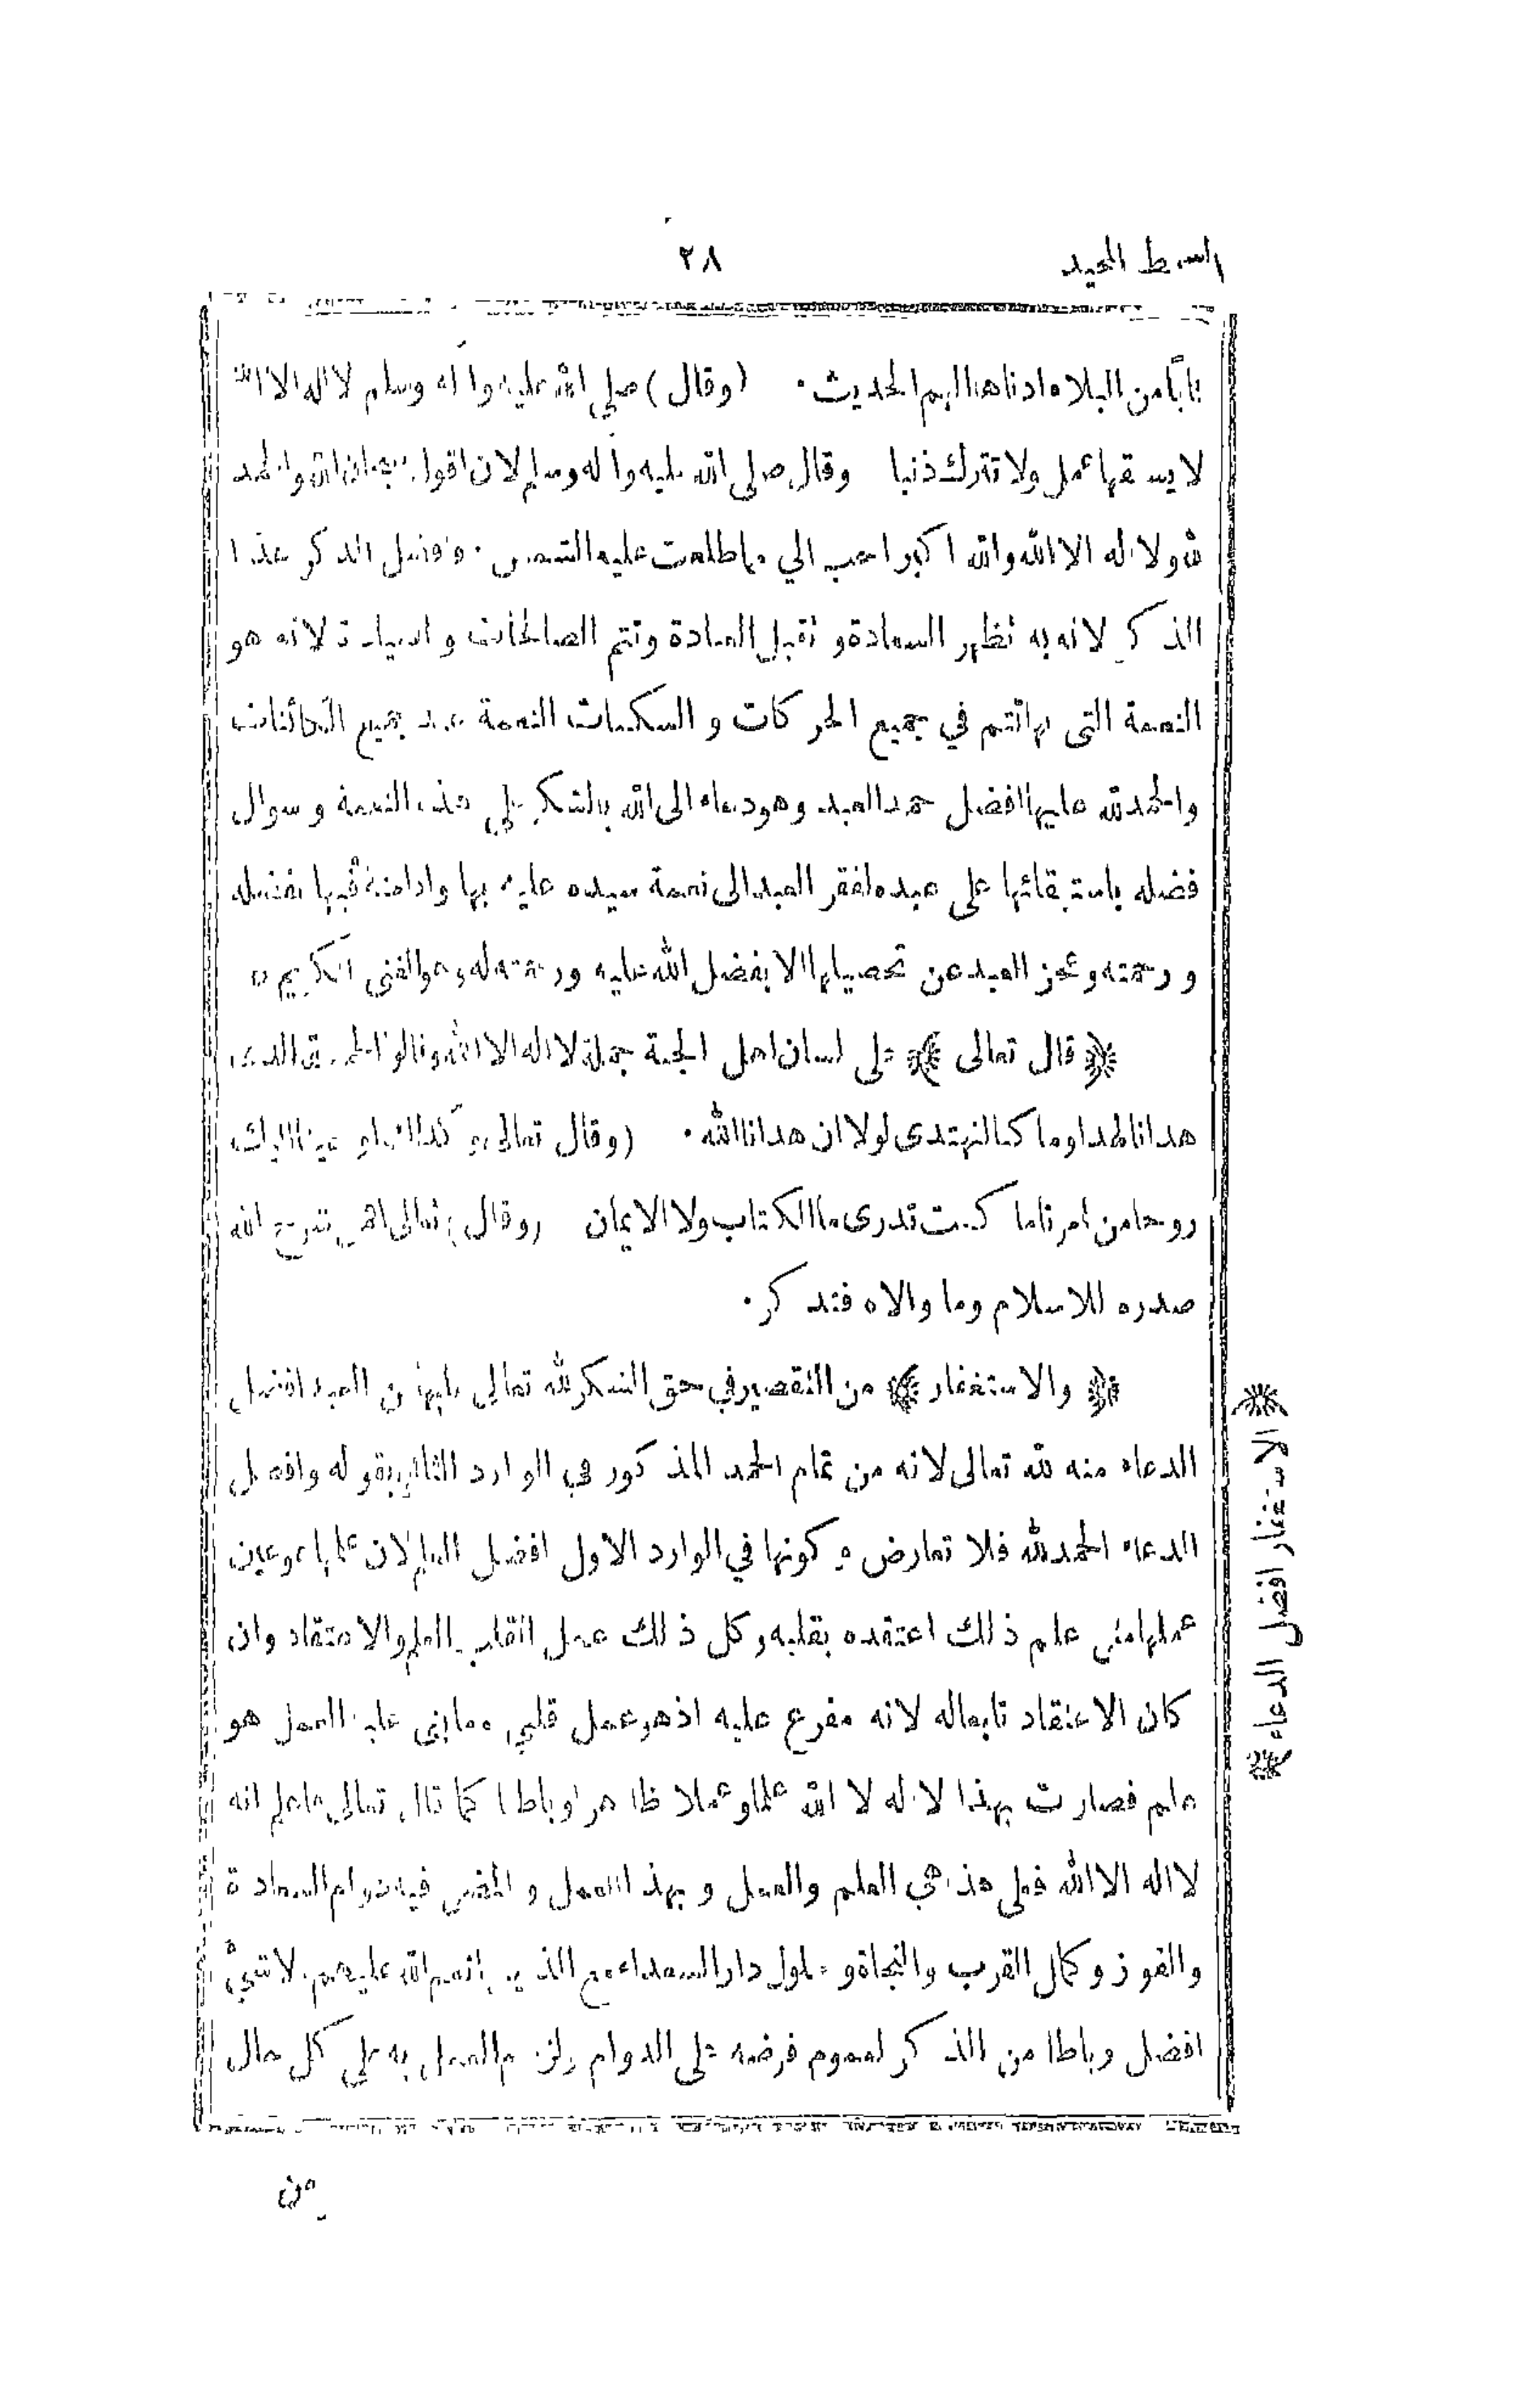 ٢٨
بابا من البلاء ادناها الهم الحديث · (وقال) صلى الله عليه وآله وسلم لا اله الا الله
لا يسبقها عمل ولا تترك ذنبا وقال صلى الله عليه وآله وسلم لان اقول سبحان الله والحمد
لله ولا اله الا الله والله اكبر احب الي مما طلعت عليه الشمس · وافضل الذكر هذا
الذكر لانه به تظهر السعادة و تقبل العبادة وتتم الصالحات و لانه هو
النعمة التى بها تتم في جميع الحركات و السكنات النعمة عند جميع الكائنات
والحمد لله عليها افضل حمد العبد وهو دعاء الى الله بالشكر على هذه النعمة و سوال
فضله باستبقائها على عبده لفقر العبد الى نعمة سيده عليه بها وادامته فيها بفضله
و رحمته و عجز العبد عن تحصيلها الا بفضل الله عليه ورحمته له وهو الغنى الكريم
قال تعالى على لسان اهل الجنة جملة لا اله الا الله وقالوا الحمد لله الذى
هدانا لهذا وما كنا لنهتدى لولا ان هدانا الله · (وقال تعالى) و كذلك اوحينا اليك
روحا من امرنا ما كنت تدرى ما الكتاب ولا الايمان (وقال) تعالى افمن شرح الله
صدره للاسلام وما والاه فتذكر ·
والاستغفار من التقصير في حق الشكر لله تعالى عليها من العبد افضل
الدعاء منه لله تعالى لانه من تمام الحمد المذكور في الوارد الثاني بقوله وافضل
الدعاء الحمد لله فلا تعارض و كونها في الوارد الاول افضل العلم لان علمها هو عين
عملها متى علم ذلك اعتقده بقلبه وكل ذلك عمل القلب العلم والاعتقاد وان
كان الاعتقاد تابعا له لانه مفرع عليه اذ هو عمل قلبي وما بنى عليه العمل هو
علم فصارت بهذا لا اله الا الله علما وعملا ظاهرا وباطنا كما قال تعالى فاعلم انه
لا اله الا الله فعلى هذا هي العلم والعمل و بهذا العمل و المضى فيه دوام السعادة
والفوز وكمال القرب والنجاة و حلول دار السعداء مع الذين انعم الله عليهم لا شيء
افضل وباطنا من الذكر لعموم فرضه على الدوام ولزوم العمل به على كل حال
من
الاستغفار افضل الدعاء